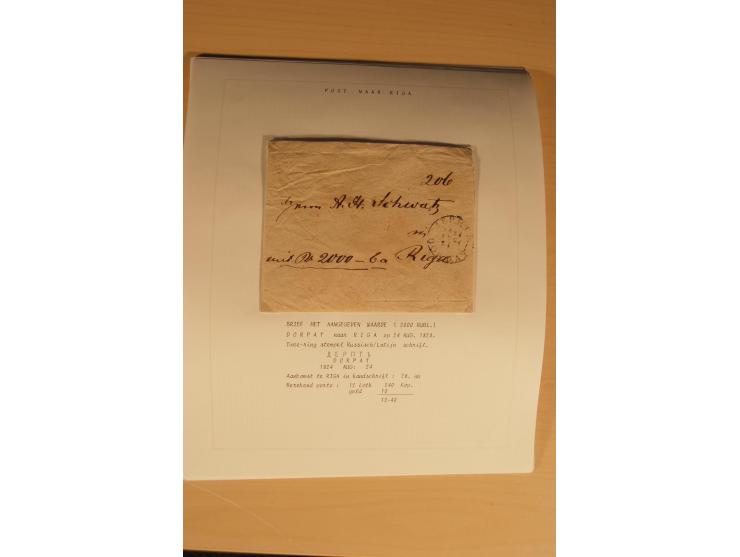 POST NAAR RIGA
206
Herrn A. H. Schwatz
in
mit Rb 2000 – Co Riga
BRIEF MET AANGEGEVEN WAARDE ( 2000 RUBL.)
DORPAT naar RIGA op 24 AUG. 1824.
Twee-ring stempel Russisch/Latijn schrift.
ДЕРПТЪ
DORPAT
1824 AUG: 24
Aankomst te RIGA in handschrift : 28. au
Berekend porto : 12 Loth 240 Kop.
geld 10
12-40